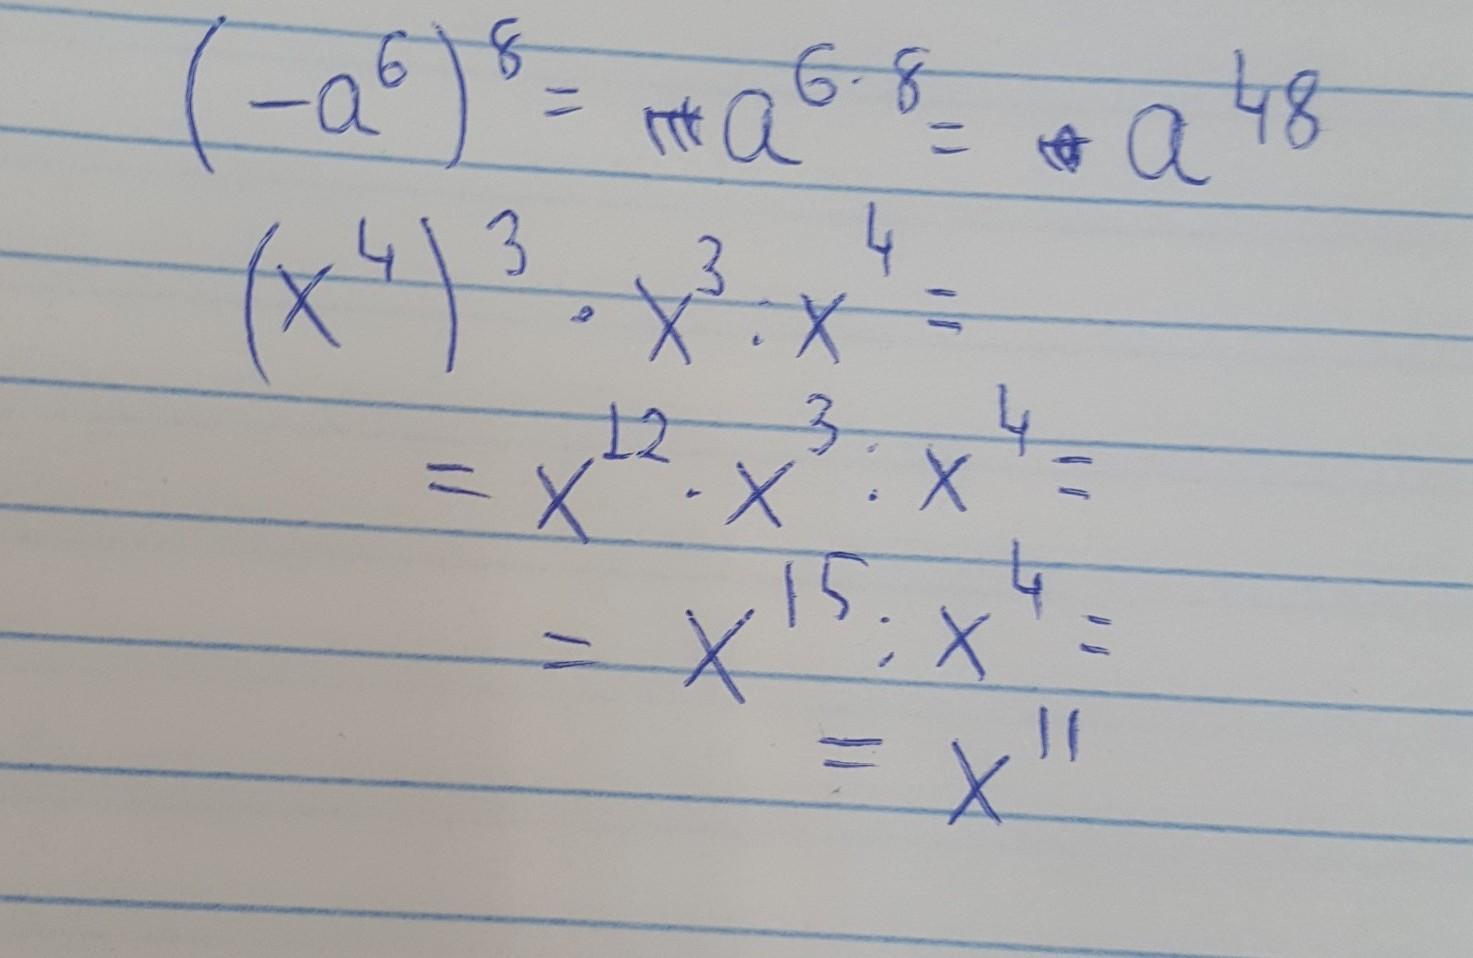 (-a⁶)⁸ = a⁶·⁸ = a⁴⁸
(x⁴)³ · x³ : x⁴ =
= x¹² · x³ : x⁴ =
= x¹⁵ : x⁴ =
= x¹¹